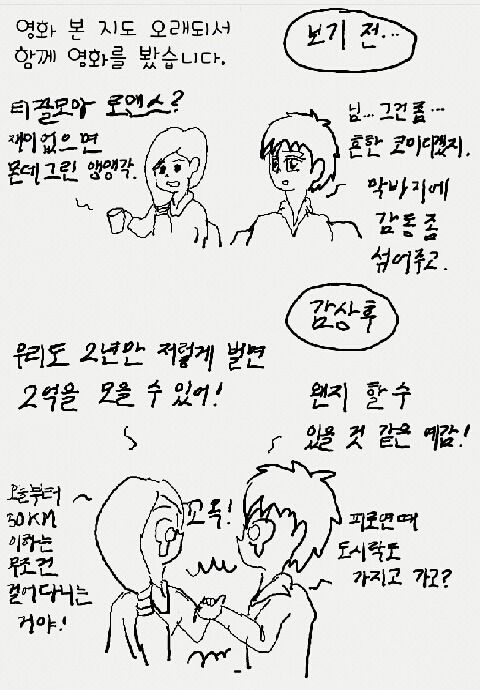 영화 본 지도 오래되서
함께 영화를 봤습니다.
보기 전...
티끌모아 로맨스?
재미없으면
몬데그린 앵앵각.
님... 그건 좀...
흔한 코미디겠지.
막바지에
감동 좀
섞어주고.
감상후
우리도 2년만 저렇게 벌면
2억을 모을 수 있어!
왠지 할 수
있을 것 같은 예감!
오늘부터
30KM
이하는
무조건
걸어다니는
거야!
꼬옥!
피로연때
도시락도
가지고 가고?